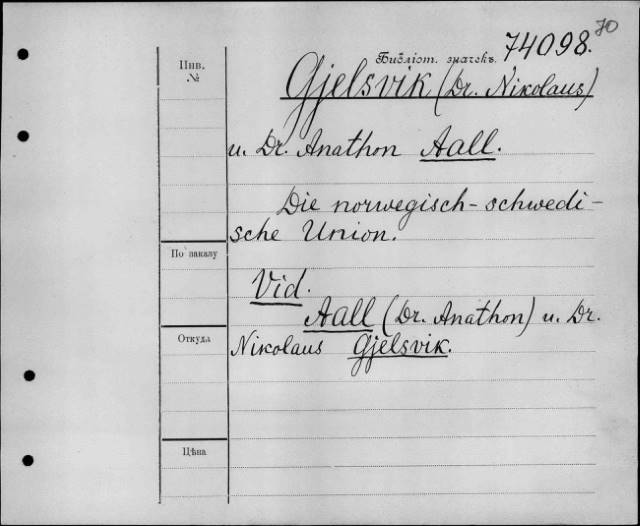 70
Библіот. значекъ. 74098.
Инв.
№
Gjelsvik (Dr. Nikolaus)
u. Dr. Anathon Aall.
Die norwegisch-schwedi-
sche Union.
По заказу
Vid.
Aall (Dr. Anathon) u. Dr.
Откуда
Nikolaus Gjelsvik.
Цѣна